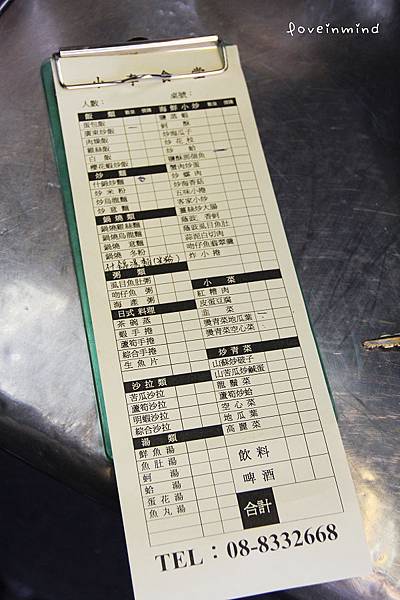 loveinmind
人數： 桌號：
飯 類 數量 價錢 海鮮小炒 數量 價錢
蛋包飯
廣東炒飯
肉燥飯
雞絲飯
白 飯
櫻花蝦炒飯
炒 類
什錦炒麵
炒米粉
炒烏龍麵
炒意麵
鍋燒類
鍋燒雞絲麵
鍋燒烏龍麵
鍋燒 意麵
鍋燒 冬粉
粥 類
虱目魚肚粥
吻仔魚 粥
海產 粥
日式料理
茶碗蒸
蝦手捲
蘆筍手捲
綜合手捲
生魚片
沙拉類
苦瓜沙拉
蘆筍沙拉
明蝦沙拉
綜合沙拉
湯 類
鮮魚湯
魚肚湯
蚵 湯
蛤 湯
蛋花湯
魚丸湯
鹽蒸蝦
蚵 酥
炒海瓜子
炒花枝
炒 蛤
鹽酥那個魚
蟹肉炒蛋
炒螺肉
炒海香菇
五味小捲
客家小炒
薑絲炒大腸
蔭豉 香蚵
蔭豉虱目魚肚
蒜泥白切肉
吻仔魚翡翠羹
炸小捲
小 菜
紅糟肉
皮蛋豆腐
韭 菜
燙青菜地瓜葉
燙青菜空心菜
炒青菜
山蘇炒破子
山苦瓜炒鹹蛋
龍鬚菜
蘆筍炒蛤
空心菜
地瓜葉
高麗菜
飲料
啤酒
合計
TEL：08-8332668